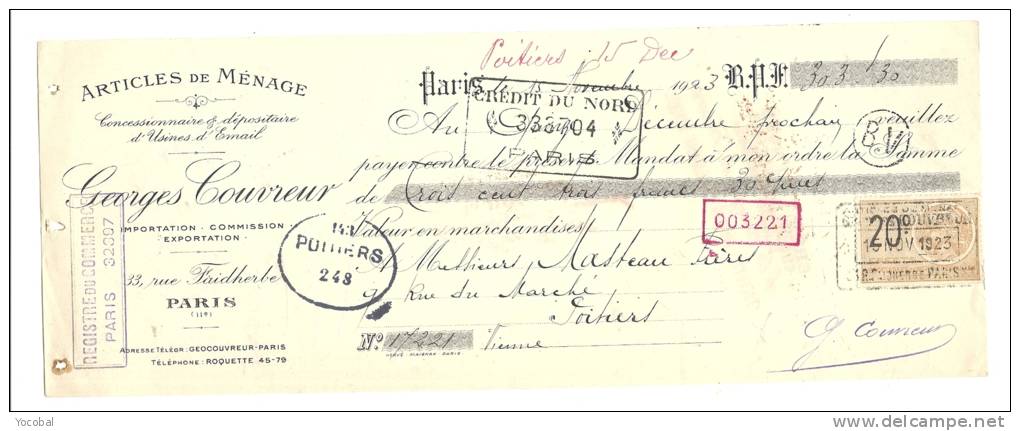 Poitiers 15 Dec
ARTICLES DE MÉNAGE
Concessionnaire & dépositaire
d'Usines d'Émail
Georges Couvreur
IMPORTATION - COMMISSION
EXPORTATION
33, rue Faidherbe
PARIS
(11e)
ADRESSE TÉLÉGR: GEOCOUVREUR-PARIS
TÉLÉPHONE: ROQUETTE 45-79
REGISTRE DU COMMERCE
PARIS 32097
Paris, le 15 Novembre 1923 B.P.F. 303.30
CRÉDIT DU NORD
332704
PARIS
Au Décembre prochain veuillez
payer contre le présent Mandat à mon ordre la Somme
de Trois cent trois francs 30
Valeur en marchandises
003221
A Messieurs Masteau Frères
9 Rue du Marché
Poitiers
Nº 17221 Vienne
POITIERS
248
20c
NOV 1923
PARIS
G. Couvreur
Yocobal
delcampe.net